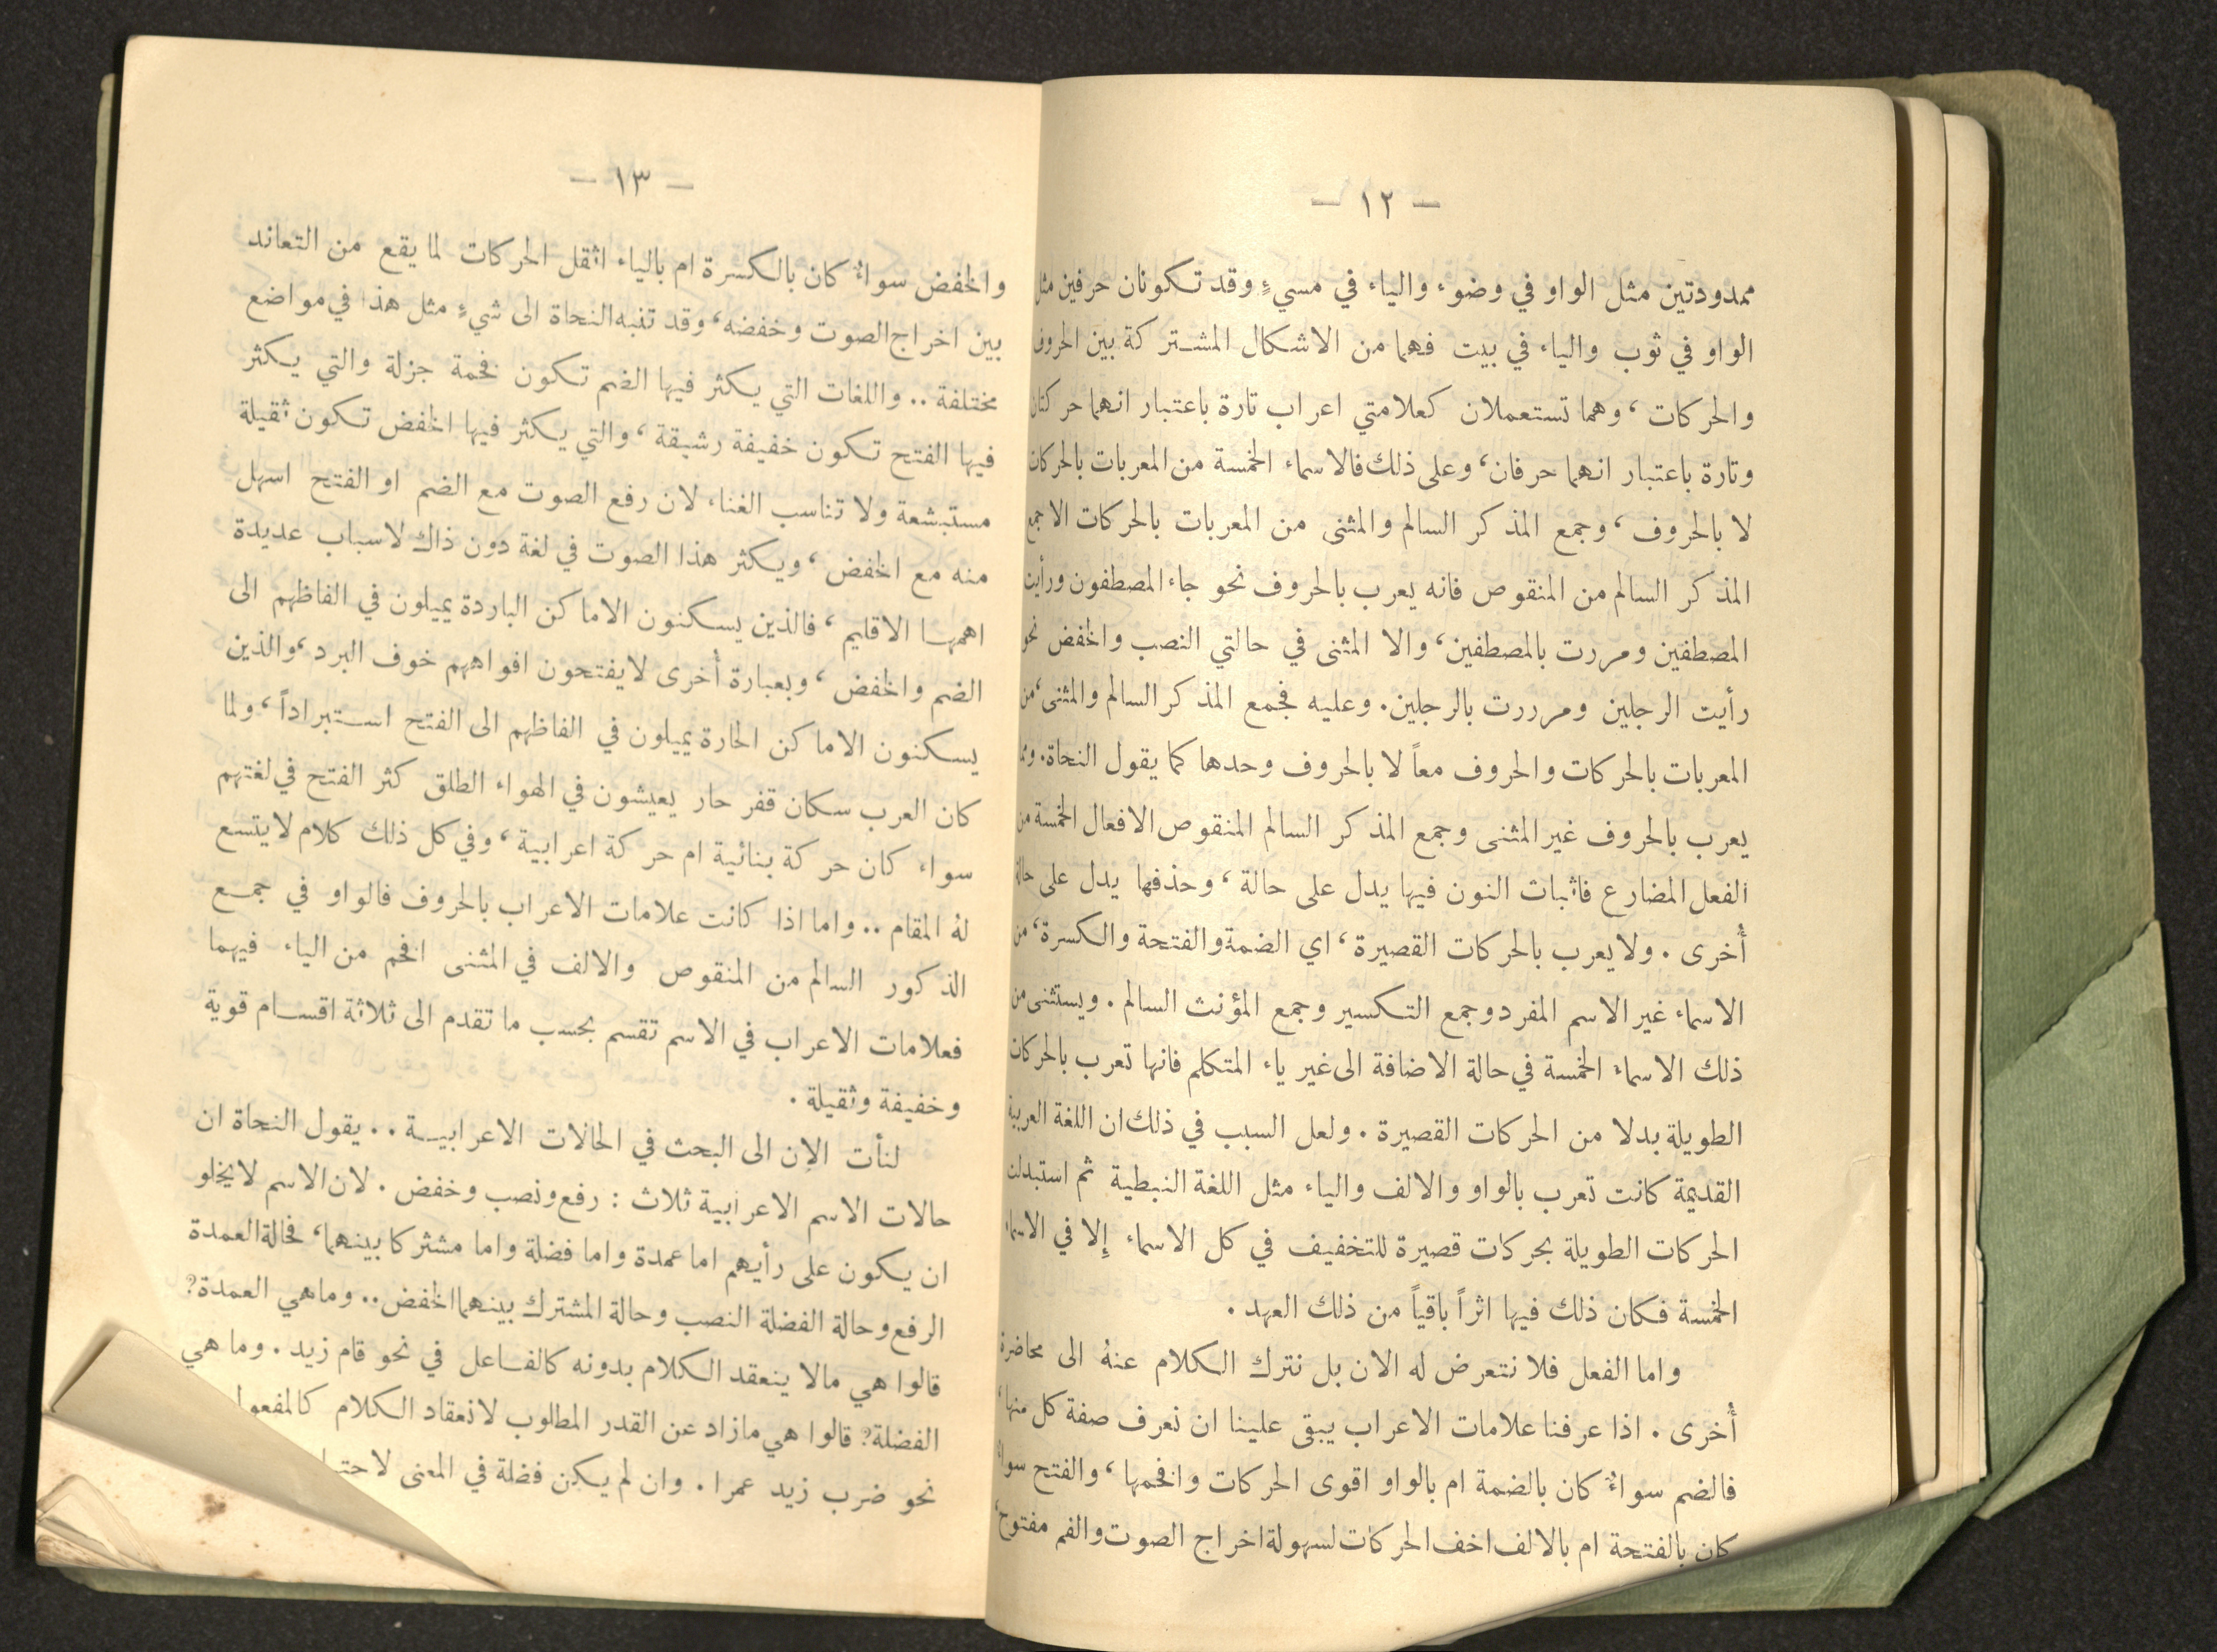 — ١٢ —
ممدودتين مثل الواو في وضوء والياء في مسيءٍ وقد تكونان حرفين مثل
الواو في ثوب والياء في بيت فهما من الاشكال المشتركة بين الحروف
والحركات، وهما تستعملان كعلامتي اعراب تارة باعتبار انهما حركتان
وتارة باعتبار انهما حرفان، وعلى ذلك فالاسماء الخمسة من المعربات بالحركات
لا بالحروف، وجمع المذكر السالم والمثنى من المعربات بالحركات الا جمع
المذكر السالم من المنقوص فانه يعرب بالحروف نحو جاء المصطفون ورأيت
المصطفين ومررت بالمصطفين، والا المثنى في حالتي النصب والخفض نحو
رأيت الرجلين ومررت بالرجلين. وعليه فجمع المذكر السالم والمثنى، من
المعربات بالحركات والحروف معاً لا بالحروف وحدها كما يقول النحاة. ومما
يعرب بالحروف غير المثنى وجمع المذكر السالم المنقوص الافعال الخمسة من
الفعل المضارع فاثبات النون فيها يدل على حالة، وحذفها يدل على حالة
أُخرى. ولا يعرب بالحركات القصيرة، اي الضمة والفتحة والكسرة، من
الاسماء غير الاسم المفرد وجمع التكسير وجمع المؤنث السالم. ويستثنى من
ذلك الاسماء الخمسة في حالة الاضافة الى غير ياء المتكلم فانها تعرب بالحركات
الطويلة بدلا من الحركات القصيرة. ولعل السبب في ذلك ان اللغة العربية
القديمة كانت تعرب بالواو والالف والياء مثل اللغة النبطية ثم استبدلت
الحركات الطويلة بحركات قصيرة للتخفيف في كل الاسماء إلا في الاسماء
الخمسة فكان ذلك فيها اثراً باقياً من ذلك العهد.
واما الفعل فلا نتعرض له الان بل نترك الكلام عنهُ الى محاضرة
أُخرى. اذا عرفنا علامات الاعراب يبقى علينا ان نعرف صفة كل منها،
فالضم سواءٌ كان بالضمة ام بالواو اقوى الحركات وافخمها، والفتح سواءٌ
كان بالفتحة ام بالالف اخف الحركات لسهولة اخراج الصوت والفم مفتوح،
— ١٣ —
والخفض سواءٌ كان بالكسرة ام بالياء اثقل الحركات لما يقع من التعاند
بين اخراج الصوت وخفضه، وقد تنبه النحاة الى شيءٍ مثل هذا في مواضع
مختلفة .. واللغات التي يكثر فيها الضم تكون فخمة جزلة والتي يكثر
فيها الفتح تكون خفيفة رشيقة، والتي يكثر فيها الخفض تكون ثقيلة
مستبشعة ولا تناسب الغناء لان رفع الصوت مع الضم او الفتح اسهل
منه مع الخفض، ويكثر هذا الصوت في لغة دون ذاك لاسباب عديدة
اهمها الاقليم، فالذين يسكنون الاماكن الباردة يميلون في الفاظهم الى
الضم والخفض، وبعبارة أُخرى لا يفتحون افواههم خوف البرد، والذين
يسكنون الاماكن الحارة يميلون في الفاظهم الى الفتح استبراداً، ولما
كان العرب سكان قفر حار يعيشون في الهواء الطلق كثر الفتح في لغتهم
سواء كان حركة بنائية ام حركة اعرابية، وفي كل ذلك كلام لا يتسع
لهُ المقام .. واما اذا كانت علامات الاعراب بالحروف فالواو في جمع
الذكور السالم من المنقوص والالف في المثنى افخم من الياء فيهما
فعلامات الاعراب في الاسم تقسم بحسب ما تقدم الى ثلاثة اقسام قوية
وخفيفة وثقيلة.
لنأت الان الى البحث في الحالات الاعرابية .. يقول النحاة ان
حالات الاسم الاعرابية ثلاث : رفع ونصب وخفض. لان الاسم لا يخلو
ان يكون على رأيهم اما عمدة واما فضلة واما مشتركا بينهما، فحالة العمدة
الرفع وحالة الفضلة النصب وحالة المشترك بينهما الخفض .. وما هي العمدة؟
قالوا هي مالا ينعقد الكلام بدونه كالفاعل في نحو قام زيد. وما هي
الفضلة؟ قالوا هي مازاد عن القدر المطلوب لانعقاد الكلام كالمفعول
نحو ضرب زيد عمرا. وان لم يكن فضلة في المعنى